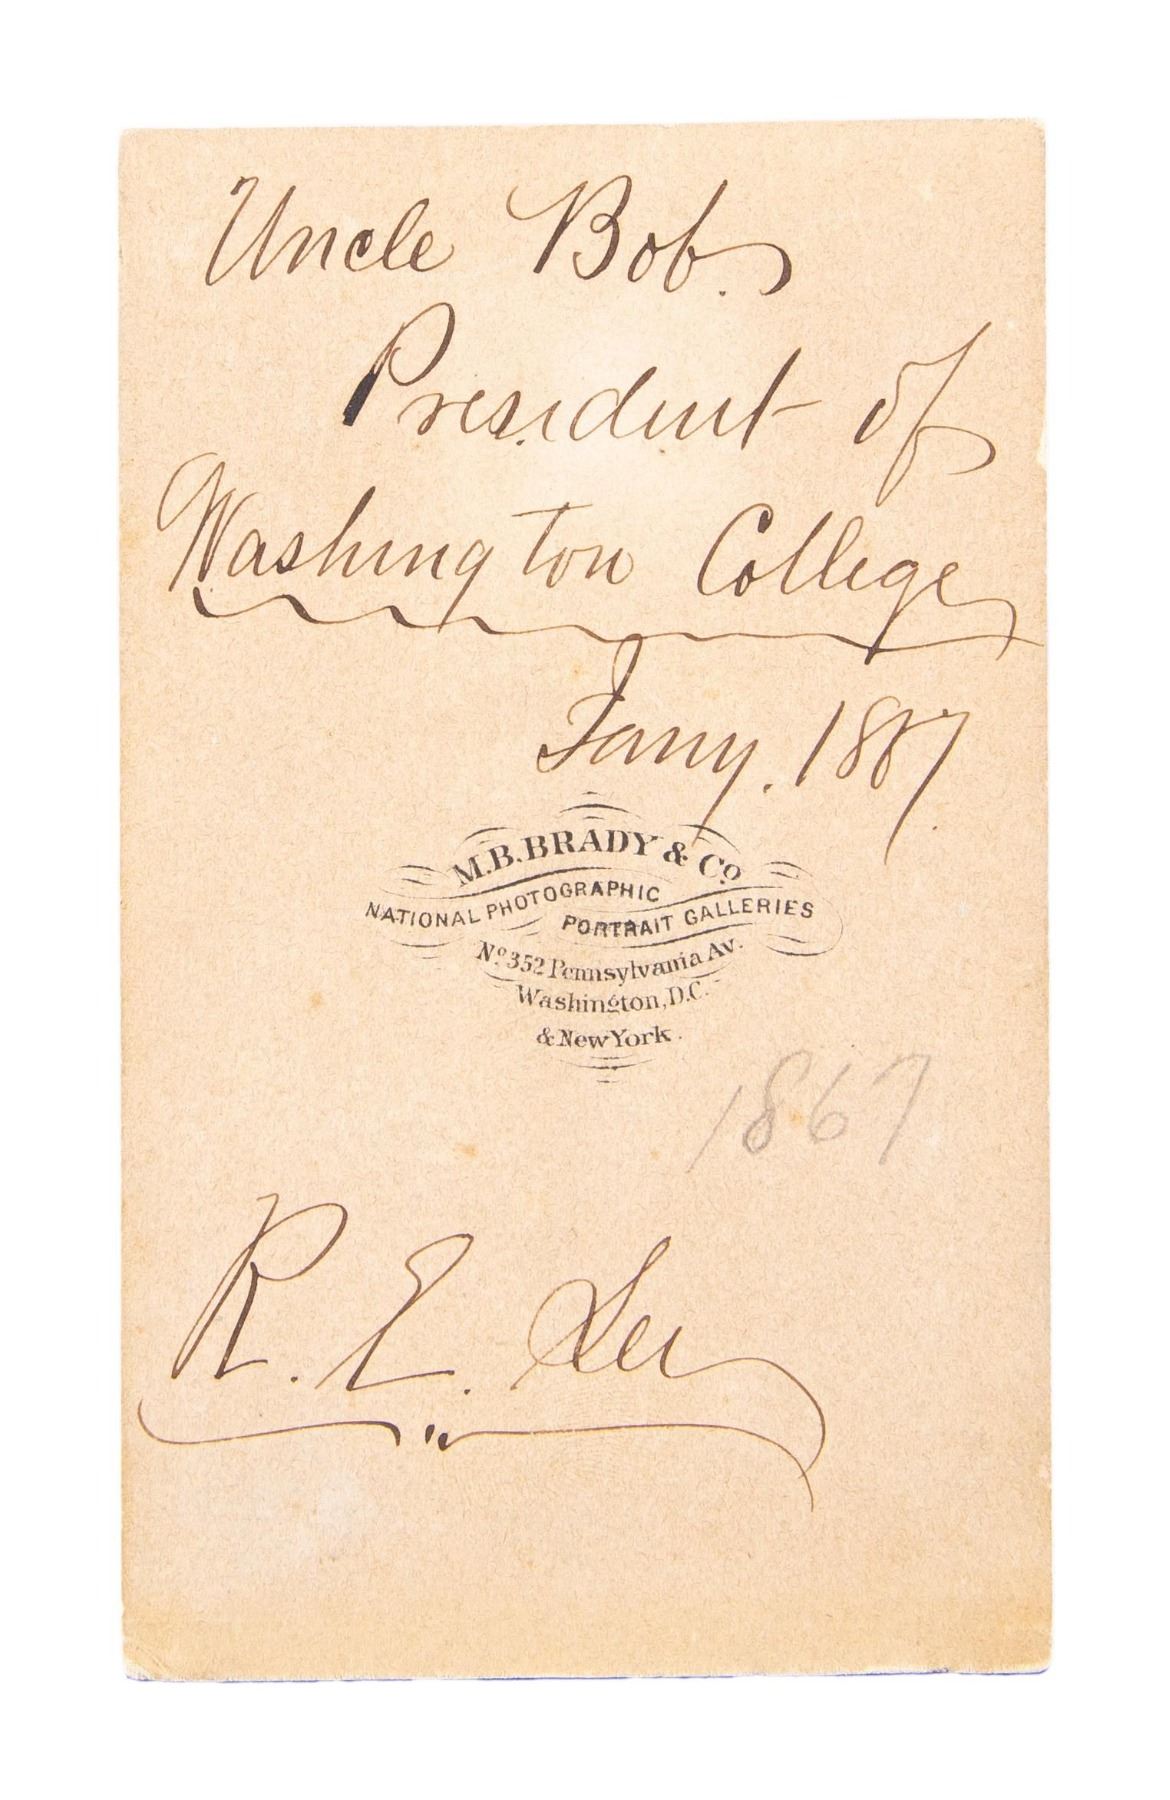 Uncle Bob.
President of
Washington College
Jany. 1867
M.B. BRADY & Co.
NATIONAL PHOTOGRAPHIC
PORTRAIT GALLERIES
No. 352 Pennsylvania Av.
Washington, D.C.
& New York.
1867
R. E. Lee